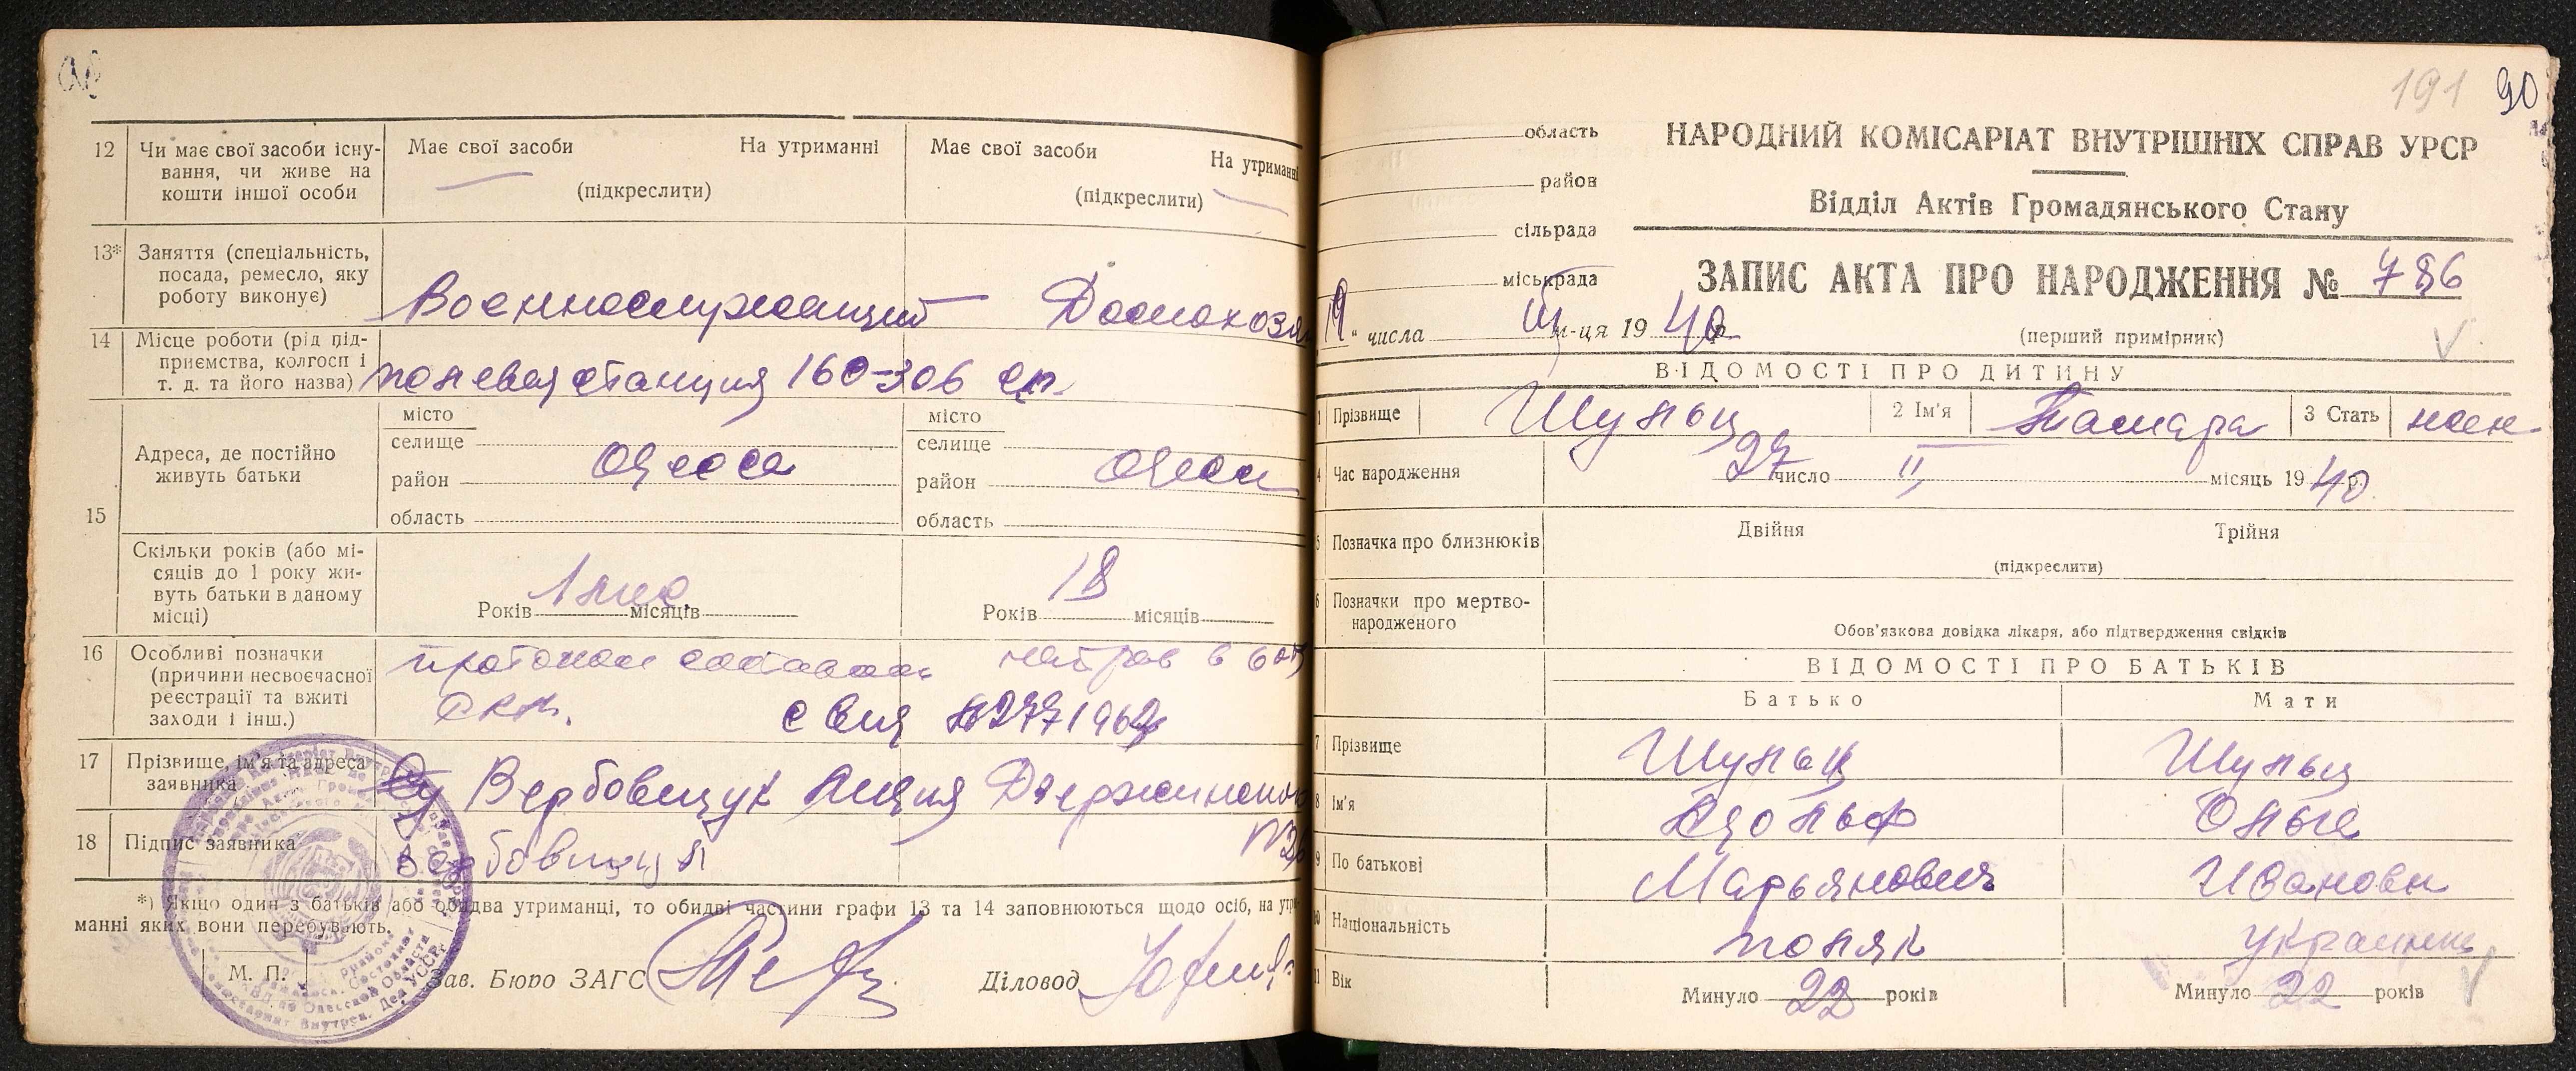 12 Чи має свої засоби існування, чи живе на кошти іншої особи
Має свої засоби На утриманні
(підкреслити)
Має свої засоби На утриманні
(підкреслити)
13* Заняття (спеціальність, посада, ремесло, яку роботу виконує)
Военнослужащий Домохозя
14 Місце роботи (рід підприємства, колгосп і т. д. та його назва)
полевая станция 160-306 сп
15 Адреса, де постійно живуть батьки
місто
селище
район Одесса
область
місто
селище
район Одесса
область
Скільки років (або місяців до 1 року живуть батьки в даному місці)
Років 1 мес місяців
Років 18 місяців
16 Особливі позначки (причини несвоєчасної реєстрації та вжиті заходи і інш.)
протокол составлен направ в
17 Прізвище, ім'я та адреса заявника
Вербовещук Лидия Дзержинского
18 Підпис заявника
№36
*) Якщо один з батьків або обидва утриманці, то обидві частини графи 13 та 14 заповнюються щодо осіб, на утри-
манні яких вони перебувають.
М. П.
Зав. Бюро ЗАГС
Діловод
191 90
область
район
сільрада
міськрада
НАРОДНИЙ КОМІСАРІАТ ВНУТРІШНІХ СПРАВ УРСР
Відділ Актів Громадянського Стану
ЗАПИС АКТА ПРО НАРОДЖЕННЯ № 786
19 " числа III м-ця 1940 р.
(перший примірник)
ВІДОМОСТІ ПРО ДИТИНУ
1 Прізвище Шульц 2 Ім'я Тамара 3 Стать жен
4 Час народження 27 число II місяць 1940 р.
5 Позначка про близнюків Двійня Трійня
(підкреслити)
6 Позначки про мертвонародженого
Обов'язкова довідка лікаря, або підтвердження свідків
ВІДОМОСТІ ПРО БАТЬКІВ
Батько Мати
7 Прізвище Шульц Шульц
8 Ім'я Адольф Ольга
9 По батькові Марьянович Ивановн
10 Національність поляк украинка
11 Вік Минуло 22 років Минуло 22 років